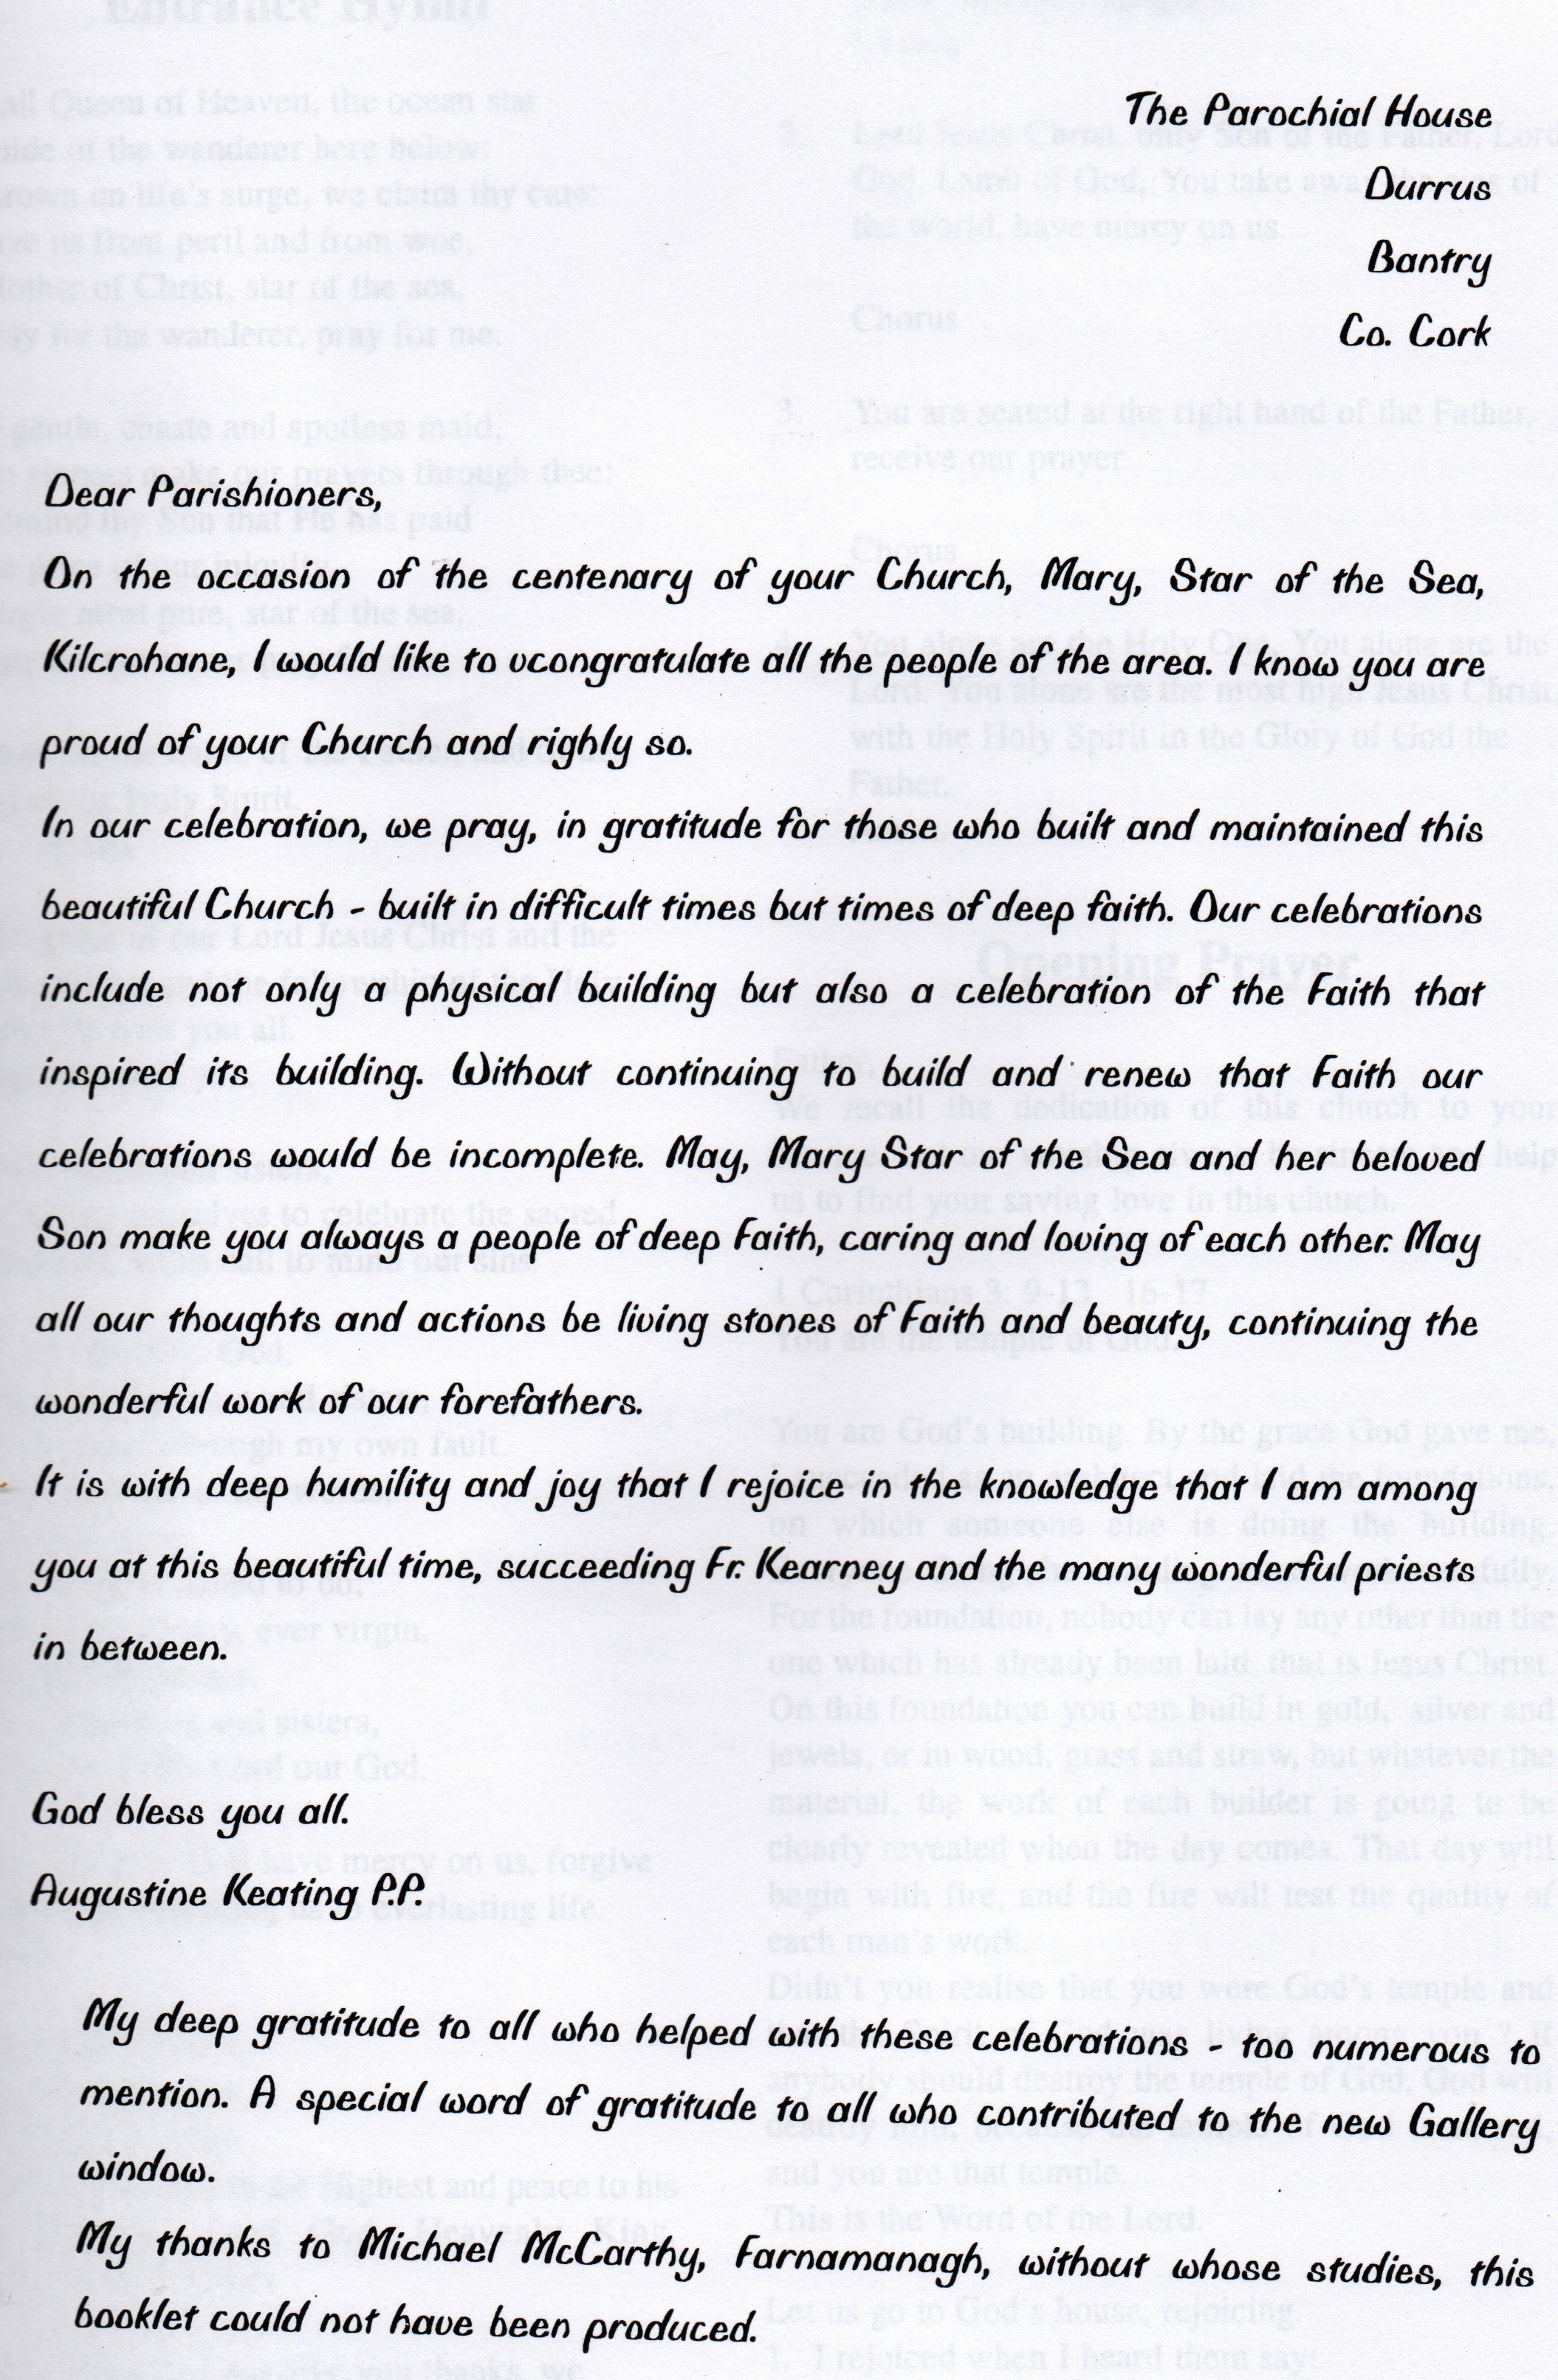 The Parochial House
Durrus
Bantry
Co. Cork
Dear Parishioners,
On the occasion of the centenary of your Church, Mary, Star of the Sea,
Kilcrohane, I would like to vcongratulate all the people of the area. I know you are
proud of your Church and righly so.
In our celebration, we pray, in gratitude for those who built and maintained this
beautiful Church - built in difficult times but times of deep faith. Our celebrations
include not only a physical building but also a celebration of the Faith that
inspired its building. Without continuing to build and renew that Faith our
celebrations would be incomplete. May, Mary Star of the Sea and her beloved
Son make you always a people of deep Faith, caring and loving of each other. May
all our thoughts and actions be living stones of Faith and beauty, continuing the
wonderful work of our forefathers.
It is with deep humility and joy that I rejoice in the knowledge that I am among
you at this beautiful time, succeeding Fr. Kearney and the many wonderful priests
in between.
God bless you all.
Augustine Keating P.P.
My deep gratitude to all who helped with these celebrations - too numerous to
mention. A special word of gratitude to all who contributed to the new Gallery
window.
My thanks to Michael McCarthy, Farnamanagh, without whose studies, this
booklet could not have been produced.